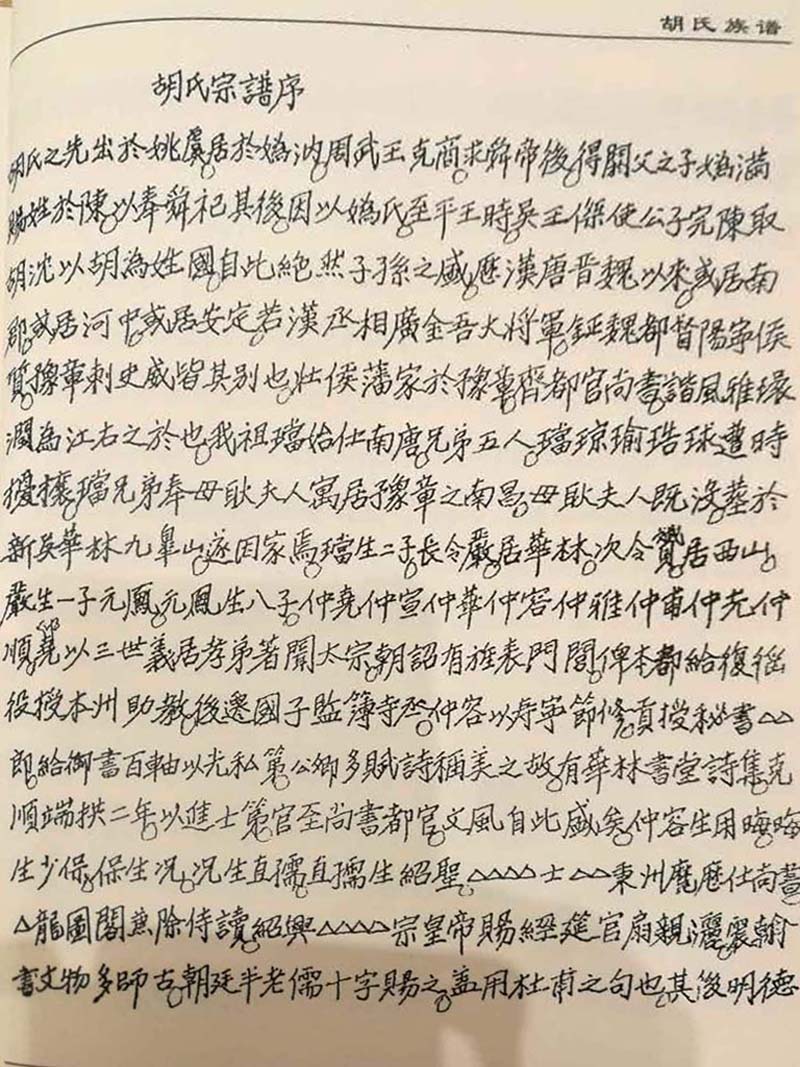 胡氏族谱
胡氏宗譜序
胡氏之先出於姚虞居於媯汭周武王克商求舜帝後得閼父之子媯滿
賜姓於陳以奉舜祀其後因以媯氏至平王時吳王傑使公子完陳取
胡沈以胡為姓國自此絕然子孫之盛歷漢唐晉魏以來或居南
郡或居河中或居安定若漢丞相廣金吾大將軍鉦魏都督陽寧侯
質豫章刺史威皆其別也壯侯藩家於豫章齊都官尚書諧風雅環
濶為江右之於也我祖璫始仕南唐兄弟五人璫琼瑜珤球遭時
擾攘璫兄弟奉母耿夫人寓居豫章之南昌母耿夫人既沒墓於
新吳華林九皐山遂因家焉璫生二子長令嚴居華林次令贊居西山
嚴生一子元鳳元鳳生八子仲堯仲宣仲華仲容仲雅仲甫仲尤仲
順仲堯以三世義居孝弟著聞太宗朝詔有旌表門閭俾本都給復徭
役授本州助教後遷國子監簿寺丞仲容以壽寧節修貢授秘書△△
郎給御書百軸以光私第公卿多賦詩稱美之故有華林書堂詩集克
順端拱二年以進士第官至尚書都官文風自此盛矣仲容生用晦晦
生少保保生況況生直孺直孺生紹聖△△△△士△△東州麾歷仕尚書
△龍圖閣兼除侍讀紹興△△△△宗皇帝賜經筵官扇親灑宸翰
書文物多師古朝廷半老儒十字賜之盖用杜甫之句也其後明德